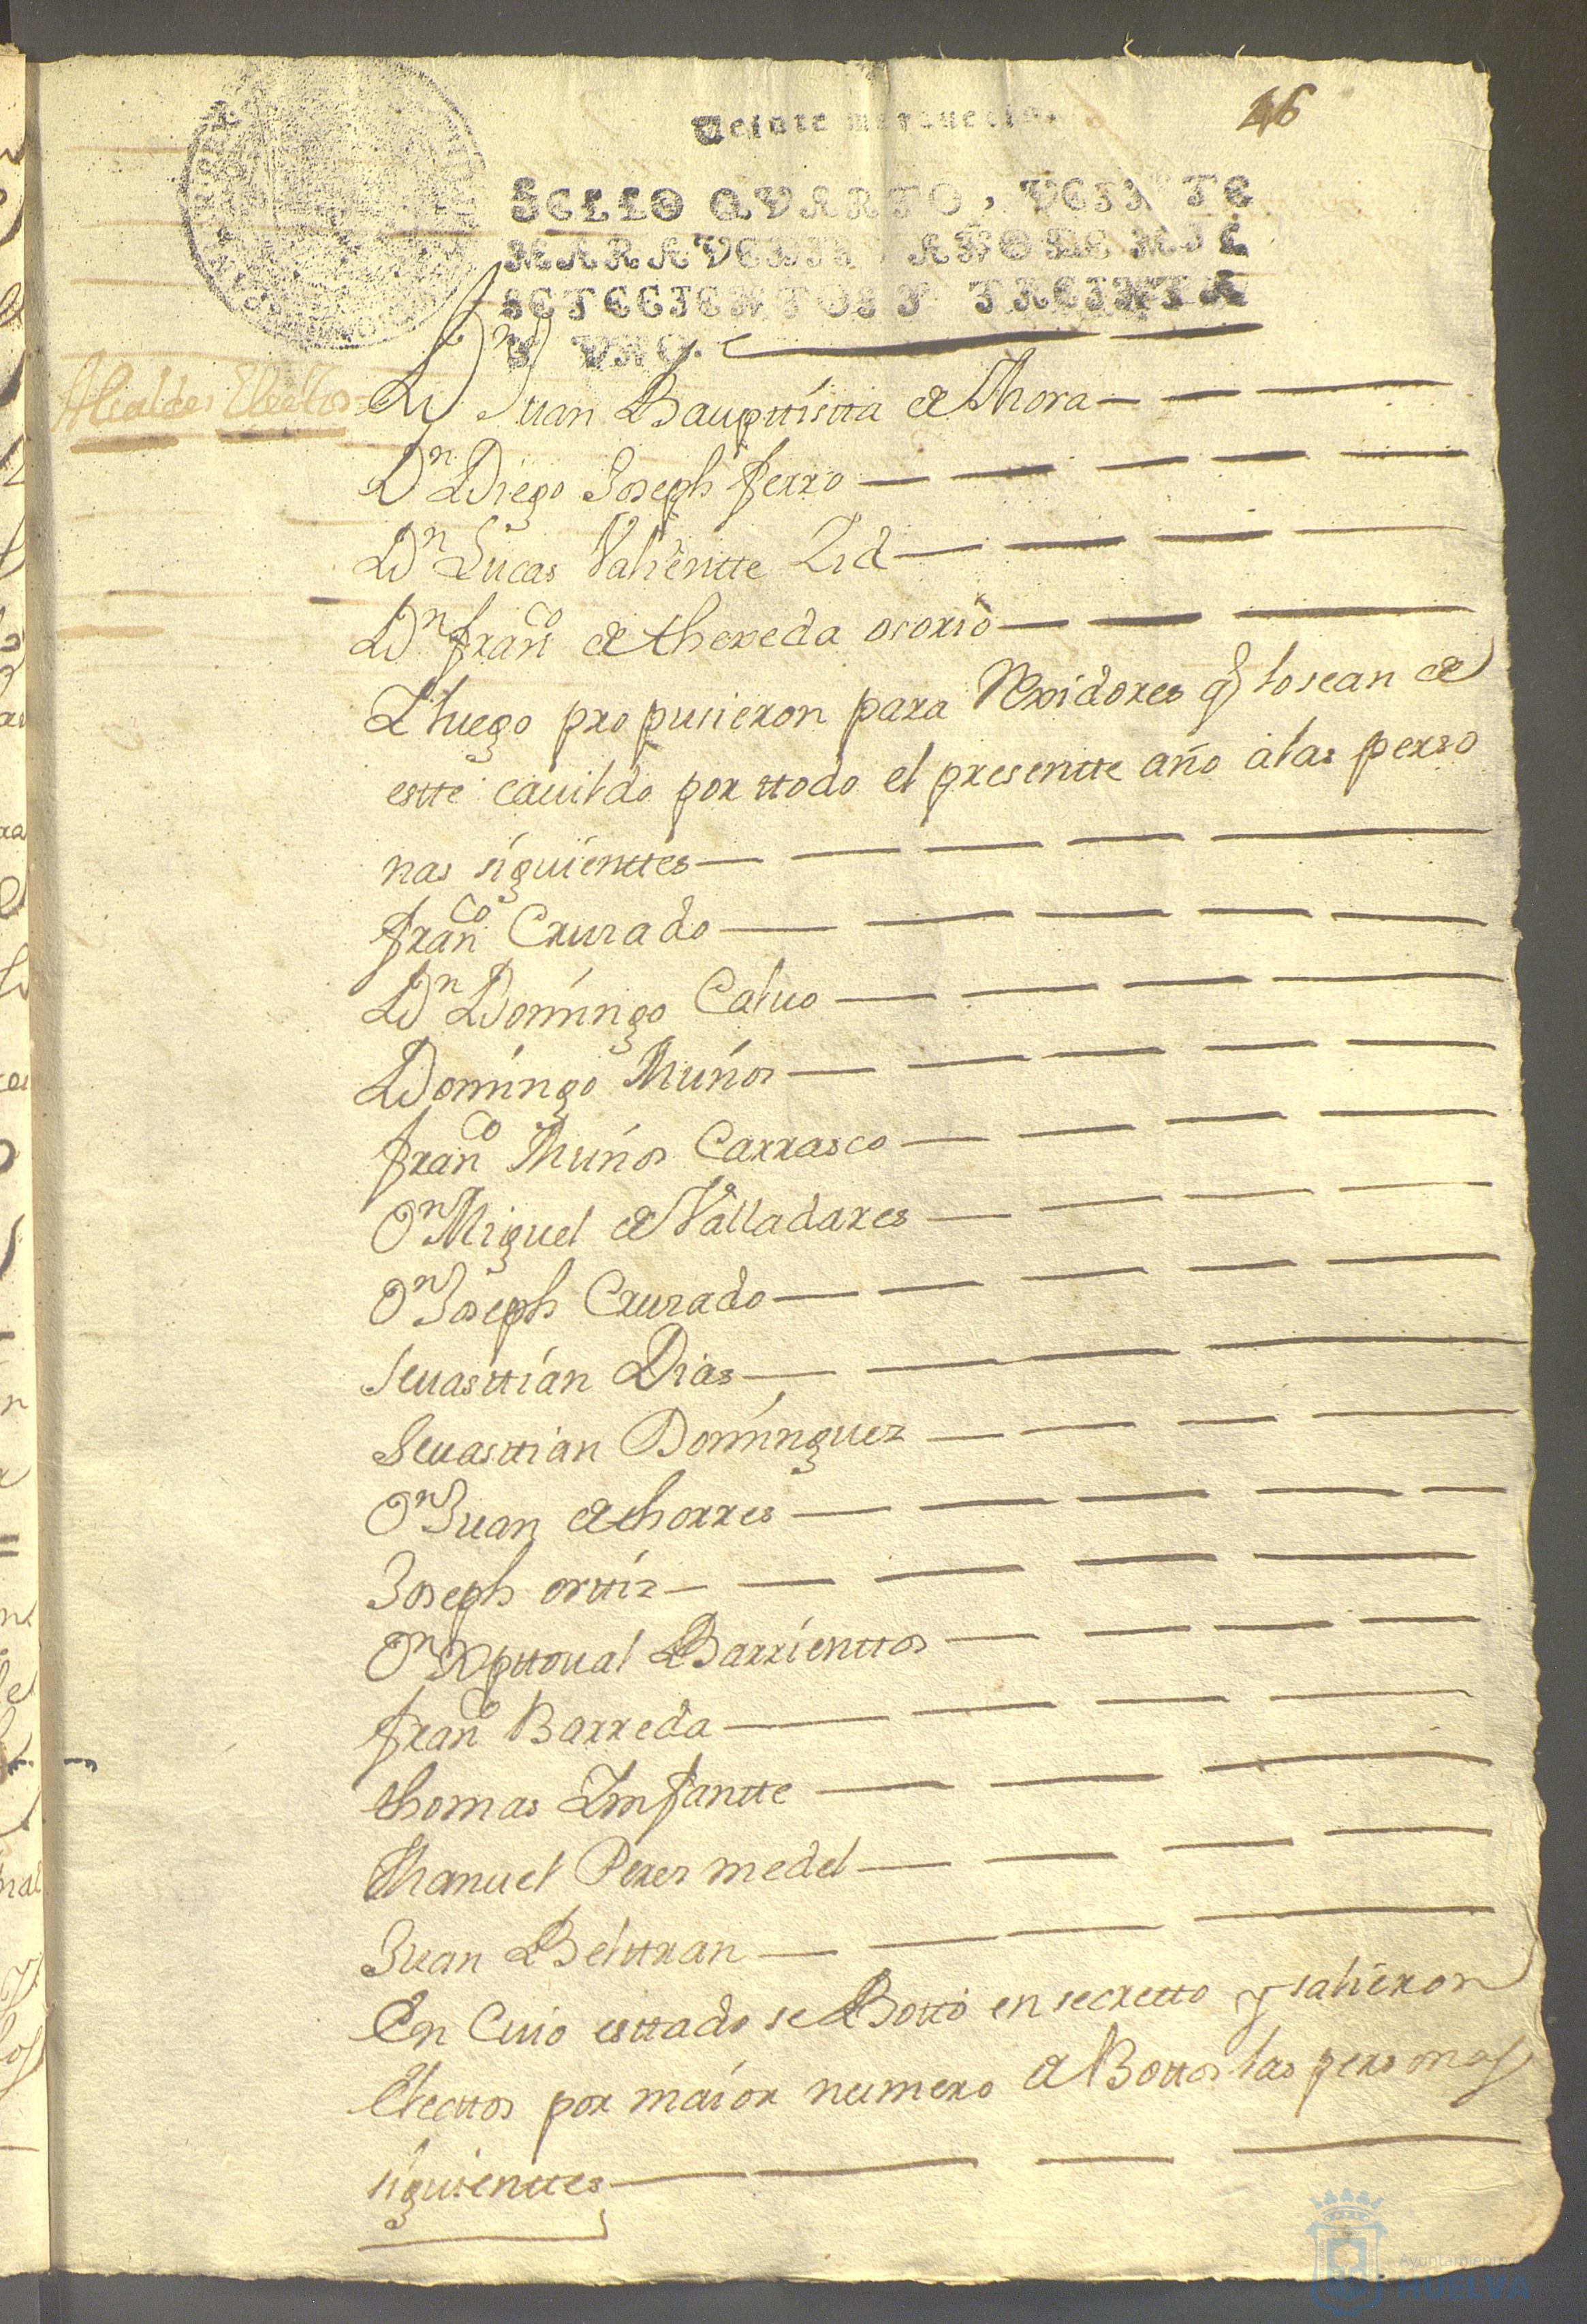 Veinte maravedis.
46
SELLO QVARTO, VEINTE
MARAVEDIS, AÑO DE MIL
SETECIENTOS Y TREINTA
Y VNO.
Alcaldes Electtos
Dn Juan Bauptistta de Mora
Dn Diego Joseph ferro
Dn Lucas Valientte Zid
Dn franco de thexeda osorio
Y luego propusieron para Rexidores q lo sean de
estte cauildo por ttodo el presentte año a las perso
nas siguienttes
franco Crusado
Dn Domingo Caluo
Domingo Muños
franco Muños Carrasco
Dn Miguel de Valladares
Dn Joseph Crusado
Seuasttian Dias
Seuasttian Dominguez
Dn Juan de thorres
Joseph orttiz
Dn Xpttoual Barrienttos
franco Barreda
thomas Ynfantte
Manuel Perez medel
Juan Belttran
En Cuio esttado se Botto en secretto y salieron
Electtos por maior numero de Bottos las personas
siguienttes
Ayuntamiento
HUELVA